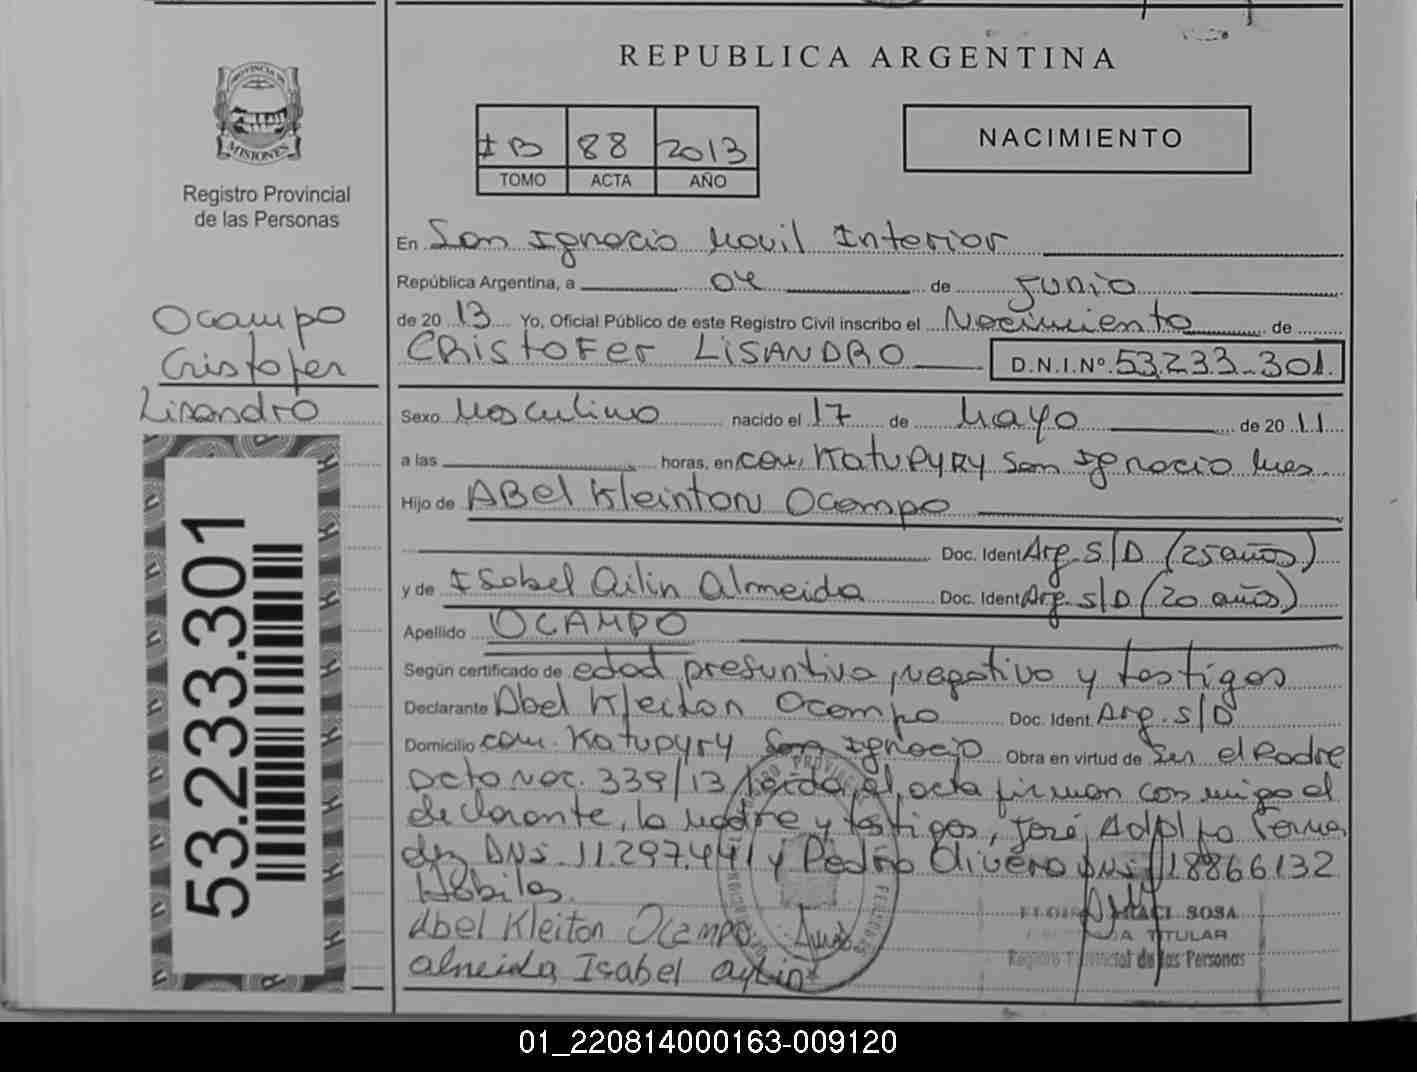 REPUBLICA ARGENTINA
PROVINCIA DE
MISIONES
Registro Provincial
de las Personas
IB 88 2013
TOMO ACTA AÑO
NACIMIENTO
Ocampo
Cristofer
Lisandro
53.233.301
En San Ignacio Movil Interior
República Argentina, a 04 de junio
de 20 13 Yo, Oficial Público de este Registro Civil inscribo el Nacimiento de
CRISTOFER LISANDRO D.N.I.Nº 53.233.301.
Sexo Masculino nacido el 17 de Mayo de 20 11
a las horas, en com. Katupyry San Ignacio Mnes
Hijo de Abel Kleinton Ocampo
Doc. Ident Arg. S/D (25 años)
y de Isabel Ailin Almeida Doc. Ident Arg. s/D (20 años)
Apellido OCAMPO
Según certificado de edad presuntiva, negativo y testigos
Declarante Abel Kleiton Ocampo Doc. Ident. Arg. s/D
Domicilio com. Katupyry San Ignacio Obra en virtud de Ser el Padre
acta nac. 339/13 leida el acta firman conmigo el
declarante, la madre y testigos, José Adolfo Ferna
dez DNI. 11.297.441 y Pedro Olivera DNI 18866132
Hábiles.
Abel Kleiton Ocampo
almeida Isabel aylin
SOSA
TITULAR
Registro Provincial de las Personas
01_220814000163-009120